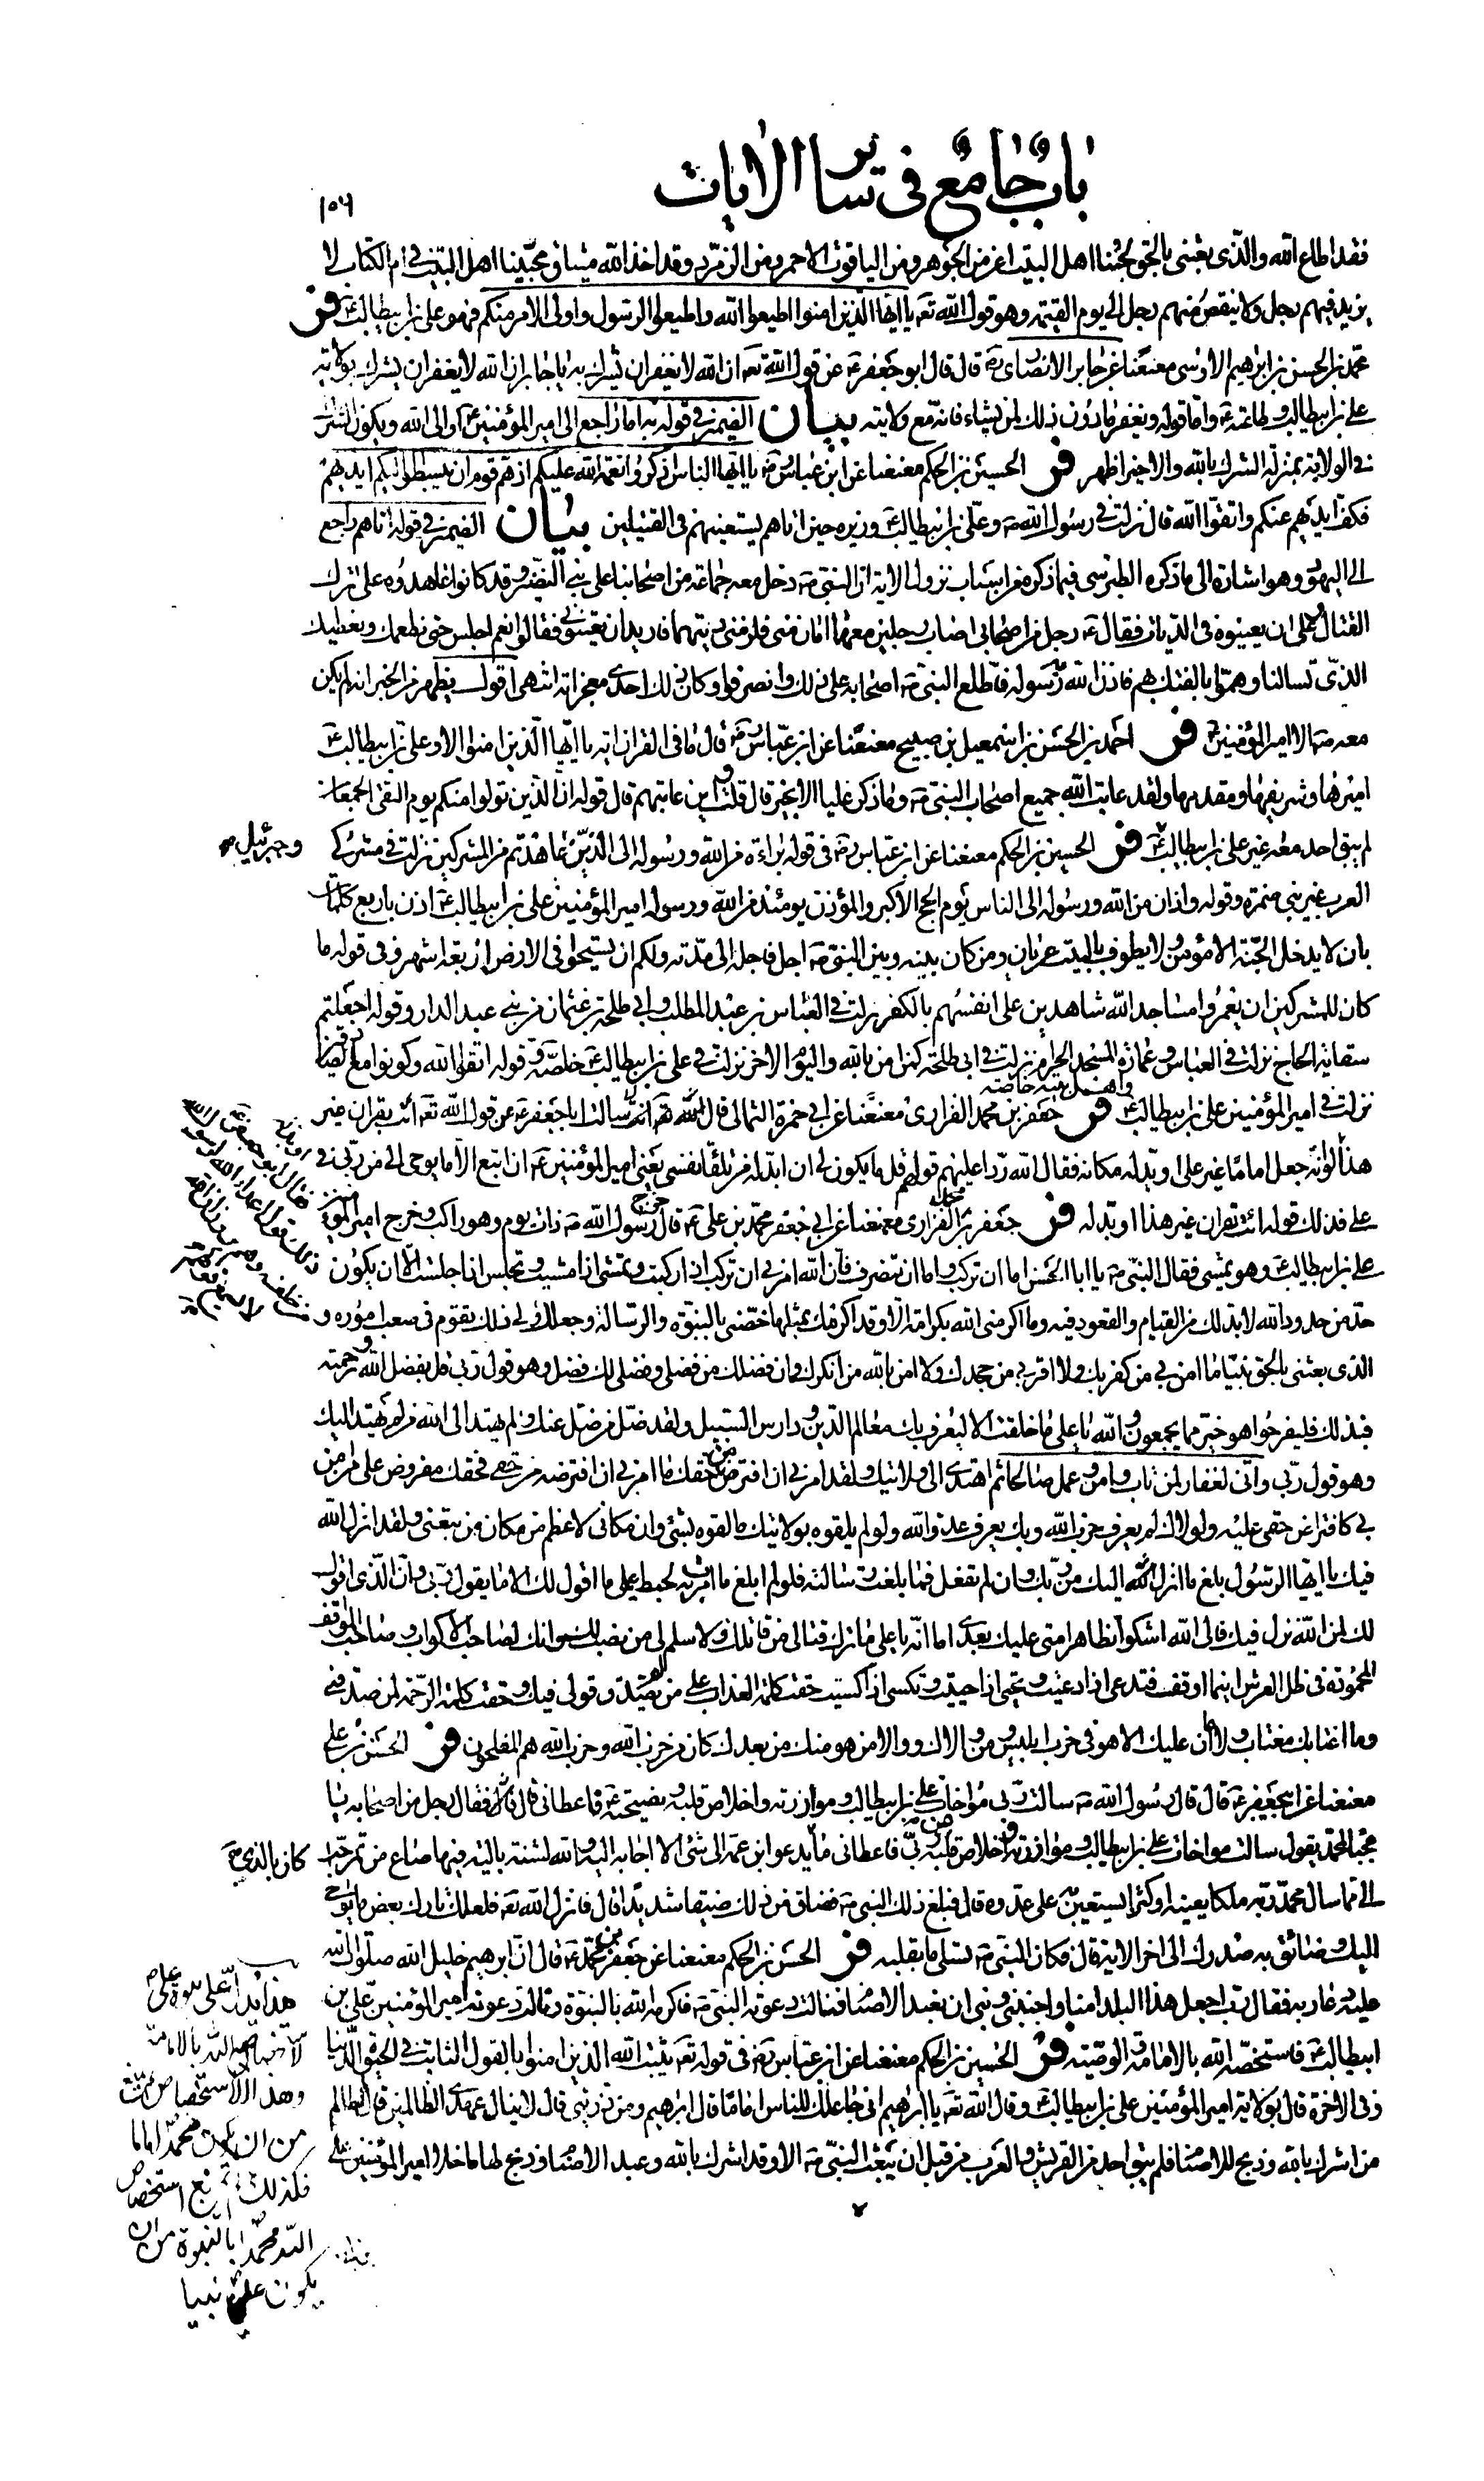 باب جامع في ساير الايات
١٥٦
فقد اطاع الله والذي بعثني بالحق لحبنا اهل البيت اعز من الجوهر ومن الياقوت الاحمر ومن الزمرد وقد اخذ الله ميثاق محبينا اهل البيت في ام الكتاب لا
يزيد فيهم رجل ولا ينقص منهم رجل الى يوم القيمة وهو قول الله تعه يا ايها الذين امنوا اطيعوا الله واطيعوا الرسول واولي الامر منكم فهو علي بن ابيطالب ع فر
محمد بن الحسن بن ابرهيم الاوسي معنعنا عن جابر الانصاري رضه قال قال ابو جعفر ع عن قول الله تعه ان الله لا يغفر ان يشرك به يا جابر ان الله لا يغفر ان يشرك بولاية
علي بن ابيطالب وطاعته ع واما قوله ويغفر ما دون ذلك لمن يشاء فانه مع ولايته بيان الضمير في قوله به اما راجع الى امير المؤمنين ع او الى الله ويكون الشرك
في الولاية بمنزلة الشرك بالله والاخير اظهر فر الحسين بن الحكم معنعنا عن ابن عباس رضه يا ايها الناس اذكروا نعمة الله عليكم اذ هم قوم ان يبسطوا اليكم ايديهم
فكف ايديهم عنكم واتقوا الله قال نزلت في رسول الله ص وعلي بن ابيطالب ع وزيره حين اتاهم يستعينهم في القتيلين بيان الضمير في قوله اتاهم راجع
الى اليهود وهو اشارة الى ما ذكره الطبرسي فيما ذكره من اسباب نزول الاية ان النبي ص دخل معه جماعة من اصحابنا على بني النضير وقد كانوا عاهدوه على ترك
القتال وعلى ان يعينوه في الديات فقال ع رجل من اصحابي اصاب رجلين معهما امان مني فلزمني ديتهما فاريد ان تعينوني فقالوا نعم اجلس حتى نطعمك ونعطيك
الذي تسالنا وهموا بالفتك بهم فاذن الله رسوله فاطلع النبي ص اصحابه على ذلك وانصرفوا وكان ذلك احدى معجزاته انتهى اقول يظهر من الخبر انه لم يكن
معه ص الا امير المؤمنين ع فر احمد بن الحسن بن اسمعيل بن صبيح معنعنا عن ابن عباس رضه قال ما في القران اية يا ايها الذين امنوا الا وعلي بن ابيطالب ع
اميرها وشريفها ومقدمها ولقد عاتب الله جميع اصحاب النبي ص وما ذكر عليا الا بخير قال قلت واين عاتبهم قال قوله ان الذين تولوا منكم يوم التقى الجمعان
لم يبق احد معه غير علي بن ابيطالب ع فر الحسين بن الحكم معنعنا عن ابن عباس رضه في قوله براءة من الله ورسوله الى الذين عاهدتم من المشركين نزلت في مشركي
وجبرئيل ص
العرب غير بني ضمرة وقوله واذان من الله ورسوله الى الناس يوم الحج الاكبر والمؤذن يومئذ من الله ورسوله امير المؤمنين علي بن ابيطالب ع اذن باربع كلمات
بان لا يدخل الجنة الا مؤمن ولا يطوف بالبيت عريان ومن كان بينه وبين النبي ص اجل فاجله الى مدته ولكم ان تسيحوا في الارض اربعة اشهر وفي قوله ما
كان للمشركين ان يعمروا مساجد الله شاهدين على انفسهم بالكفر نزلت في العباس بن عبد المطلب وابي طلحة بن عثمان من بني عبد الدار وقوله اجعلتم
سقاية الحاج نزلت في العباس وعمارة المسجد الحرام نزلت في ابي طلحة كمن امن بالله واليوم الاخر نزلت في علي بن ابيطالب ع خاصة وقوله اتقوا الله وكونوا مع الصادقين
نزلت في امير المؤمنين علي بن ابيطالب ع واهل بيته خاصة فر جعفر بن محمد الفزاري معنعنا عن ابي حمزة الثمالي قال سالت ابا جعفر ع عن قول الله تعه ائت بقران غير
هذا او بدله مكانه فقال الله ردا عليهم قولهم قل ما يكون لي ان ابدله من تلقاء نفسي يعني امير المؤمنين ع ان اتبع الا ما يوحى الي من ربي في
علي فذلك قوله ائت بقران غير هذا او بدله فر جعفر بن محمد الفزاري معنعنا عن ابي جعفر محمد بن علي ع قال خرج رسول الله ص ذات يوم وهو راكب وخرج امير المؤمنين
علي بن ابيطالب ع وهو يمشي فقال النبي ص يا ابا الحسن اما ان تركب واما ان تنصرف فان الله امرني ان تركب اذا ركبت وتمشي اذا مشيت وتجلس اذا جلست الا ان يكون
حد من حدود الله لا بد لك من القيام والقعود فيه وما اكرمني الله بكرامة الا وقد اكرمك بمثلها خصني بالنبوة والرسالة وجعلك ولي ذلك تقوم في صعب اموره و
الذي بعثني بالحق نبيا ما امن بي من كفر بك ولا اقر بي من جحدك ولا امن بالله من انكرك وان فضلك من فضلي وفضلي لك فضل وهو قول ربي قل بفضل الله ورحمته
فبذلك فليفرحوا هو خير مما يجمعون والله يا علي ما خلقت الا ليعرف بك معالم الدين ودارس السبيل ولقد ضل من ضل عنك ولم يهتد الى الله من لم يهتد اليك
وهو قول ربي واني لغفار لمن تاب وامن وعمل صالحا ثم اهتدى الى ولايتك ولقد امرني ان افترض من حقك ما امرني ان افترضه من حقي فحقك مفروض على من امن
بي كافتراض حقي عليه ولولاك لم يعرف حزب الله وبك يعرف عدو الله ولو لم يلقوه بولايتك ما لقوه بشئ وان مكاني لاعظم من مكان من تبعني ولقد انزل الله
فيك يا ايها الرسول بلغ ما انزل اليك من ربك وان لم تفعل فما بلغت رسالته فلو لم ابلغ ما امرت به لحبط عملي ما اقول لك الا ما يقول ربي وان الذي اقول
لك لمن الله نزل فيك فالى الله اشكو تظاهر امتي عليك بعدي اما انه يا علي ما ترك قتالي من قاتلك ولا سلم لي من نصب لك وانك لصاحب الاكواب وصاحب المواقف
المحمودة في ظل العرش اينما اوقف فتدعى اذا دعيت وتحيى اذا حييت وتكسى اذا كسيت حقت كلمة العذاب على من لم يصدق قولي فيك وحقت كلمة الرحمة لمن صدقني
وما اغتابك مغتاب ولا اعان عليك الا هو في حزب ابليس ومن والاك ووالا من هو منك من بعدك كان من حزب الله وحزب الله هم المفلحون فر الحسن بن علي
معنعنا عن ابي جعفر ع قال قال رسول الله ص سالت ربي مؤاخاة علي بن ابيطالب وموازرته واخلاص قلبه ونصيحته ع فاعطاني قال فقال رجل من اصحابه يا
عجبا لمحمد يقول سالت مواخاة علي بن ابيطالب وموازرته واخلاص قلبه من ربي فاعطاني ما يدعو ابن عمه الى شئ الا اجابه اليه والله لشنة بالية فيها صاع من تمر احب
كان بالذي ص
الي مما سال محمد ربه ملكا يعينه او كنزا يستعين به على عدوه قال فبلغ ذلك النبي ص فضاق من ذلك ضيقا شديدا قال فانزل الله تعه فلعلك تارك بعض ما يوحى
اليك وضائق به صدرك الى اخر الاية قال فكان النبي ص تسلى ما بقلبه فر الحسن بن الحكم معنعنا عن جعفر بن محمد ع قال ان ابرهيم خليل الله صلوات الله
عليه دعا ربه فقال رب اجعل هذا البلد امنا واجنبني وبني ان نعبد الاصنام فنالت دعوته النبي ص فاكرمه الله بالنبوة ونالت دعوته امير المؤمنين علي بن
ابيطالب ع فاستخصه الله بالامامة والوصية فر الحسين بن الحكم معنعنا عن ابن عباس رضه في قوله تعه يثبت الله الذين امنوا بالقول الثابت في الحيوة الدنيا
وفي الاخرة قال بولاية امير المؤمنين علي بن ابيطالب ع وقال الله تعه يا ابرهيم اني جاعلك للناس اماما قال ابرهيم ومن ذريتي قال لا ينال عهدي الظالمين قال الظالم
من اشرك بالله وذبح للاصنام فلم يبق احد من القريش والعرب من قبل ان يبعث النبي ص الا وقد اشرك بالله وعبد الاصنام وذبح لها ما خلا امير المؤمنين علي
هذا يدل على
وهذا الاستخصاص
من ان يكون محمد اماما
فكذلك استخصاص
الله محمدا بالنبوة من ان
يكون علي نبيا